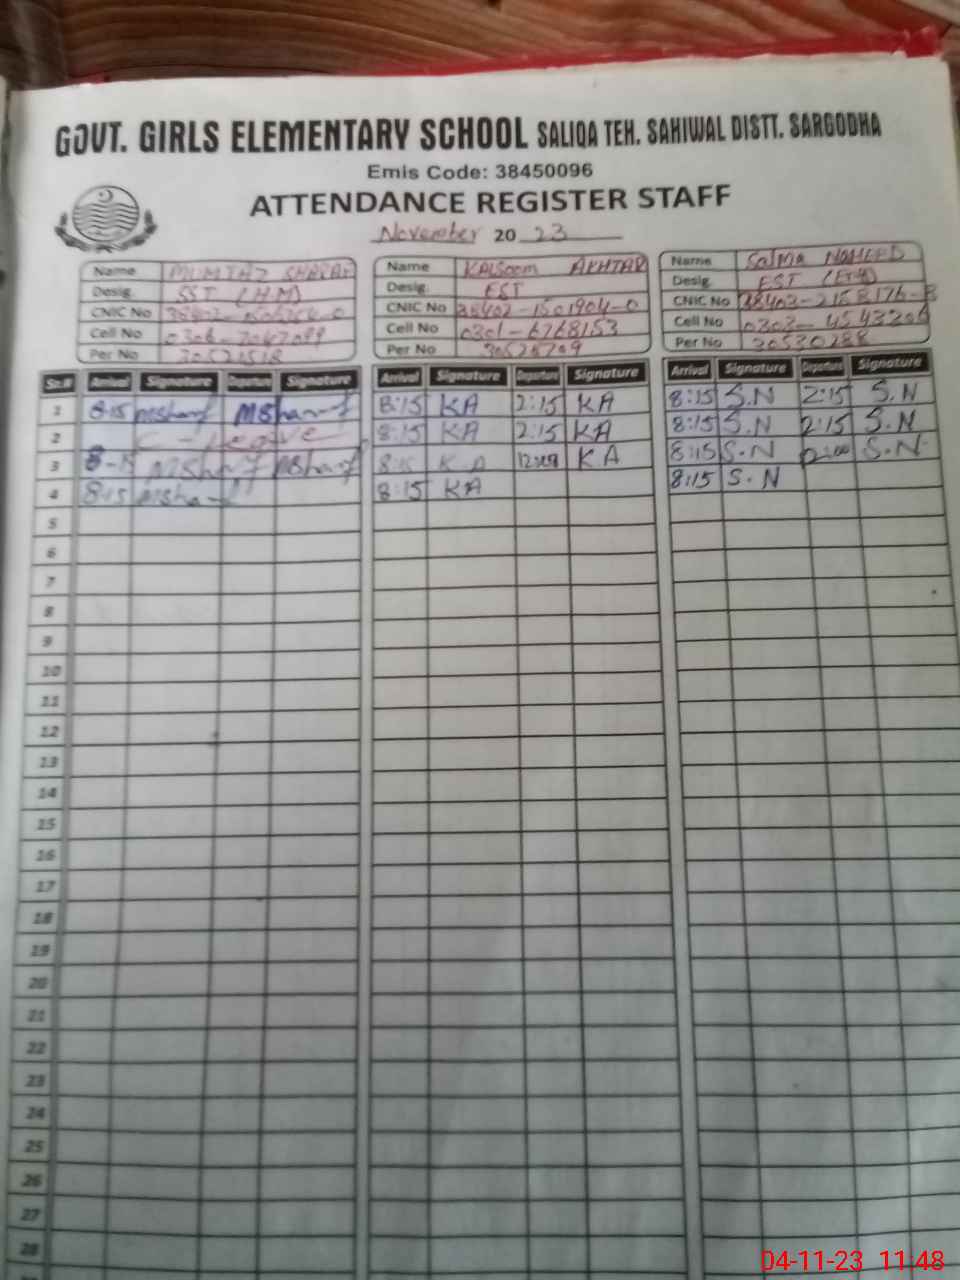 GOVT. GIRLS ELEMENTARY SCHOOL SALIQA TEH. SAHIWAL DISTT. SARGODHA
Emis Code: 38450096
ATTENDANCE REGISTER STAFF
November 20 23
Name MUMTAZ SHARAF Name KALSOOM AKHTAR Name SALMA NAHEED
Desig. SST (H.M) Desig. EST Desig. EST
CNIC No CNIC No 38402-1501904-0 CNIC No 38403-2158176-8
Cell No Cell No 0301-6768153 Cell No
Per No Per No Per No 30530288
Sr.# Arrival Signature Departure Signature Arrival Signature Departure Signature Arrival Signature Departure Signature
1 8:15 MSharaf MSharaf 8:15 KA 2:15 KA 8:15 S.N 2:15 S.N
2 C-Leave 8:15 KA 2:15 KA 8:15 S.N 2:15 S.N
3 8-15 MSharaf MSharaf 8:15 K.A KA 8:15 S.N 12:00 S.N
4 8:15 MSharaf 8:15 KA 8:15 S.N
5
6
7
8
9
10
11
12
13
14
15
16
17
18
19
20
21
22
23
24
25
26
27
28
04-11-23 11:48